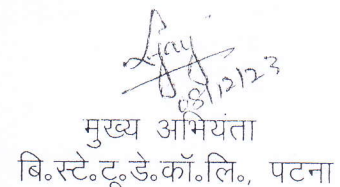 08/12/23
मुख्य अभियंता
बि॰स्टे॰टू॰डे॰कॉ॰लि॰, पटना